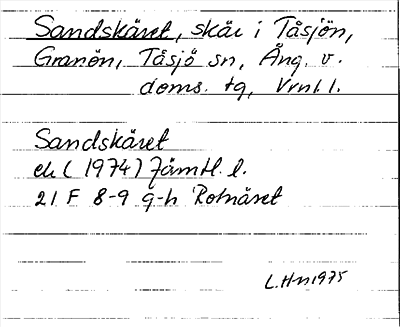 Sandskäret, skär i Tåsjön,
Granön, Tåsjö sn, Ång. v.
doms. tg, Vrnl. l.
Sandskäret
ek (1974) Jämtl. l.
21 F 8-9 g-h Rotnäset
L.Hn 1975